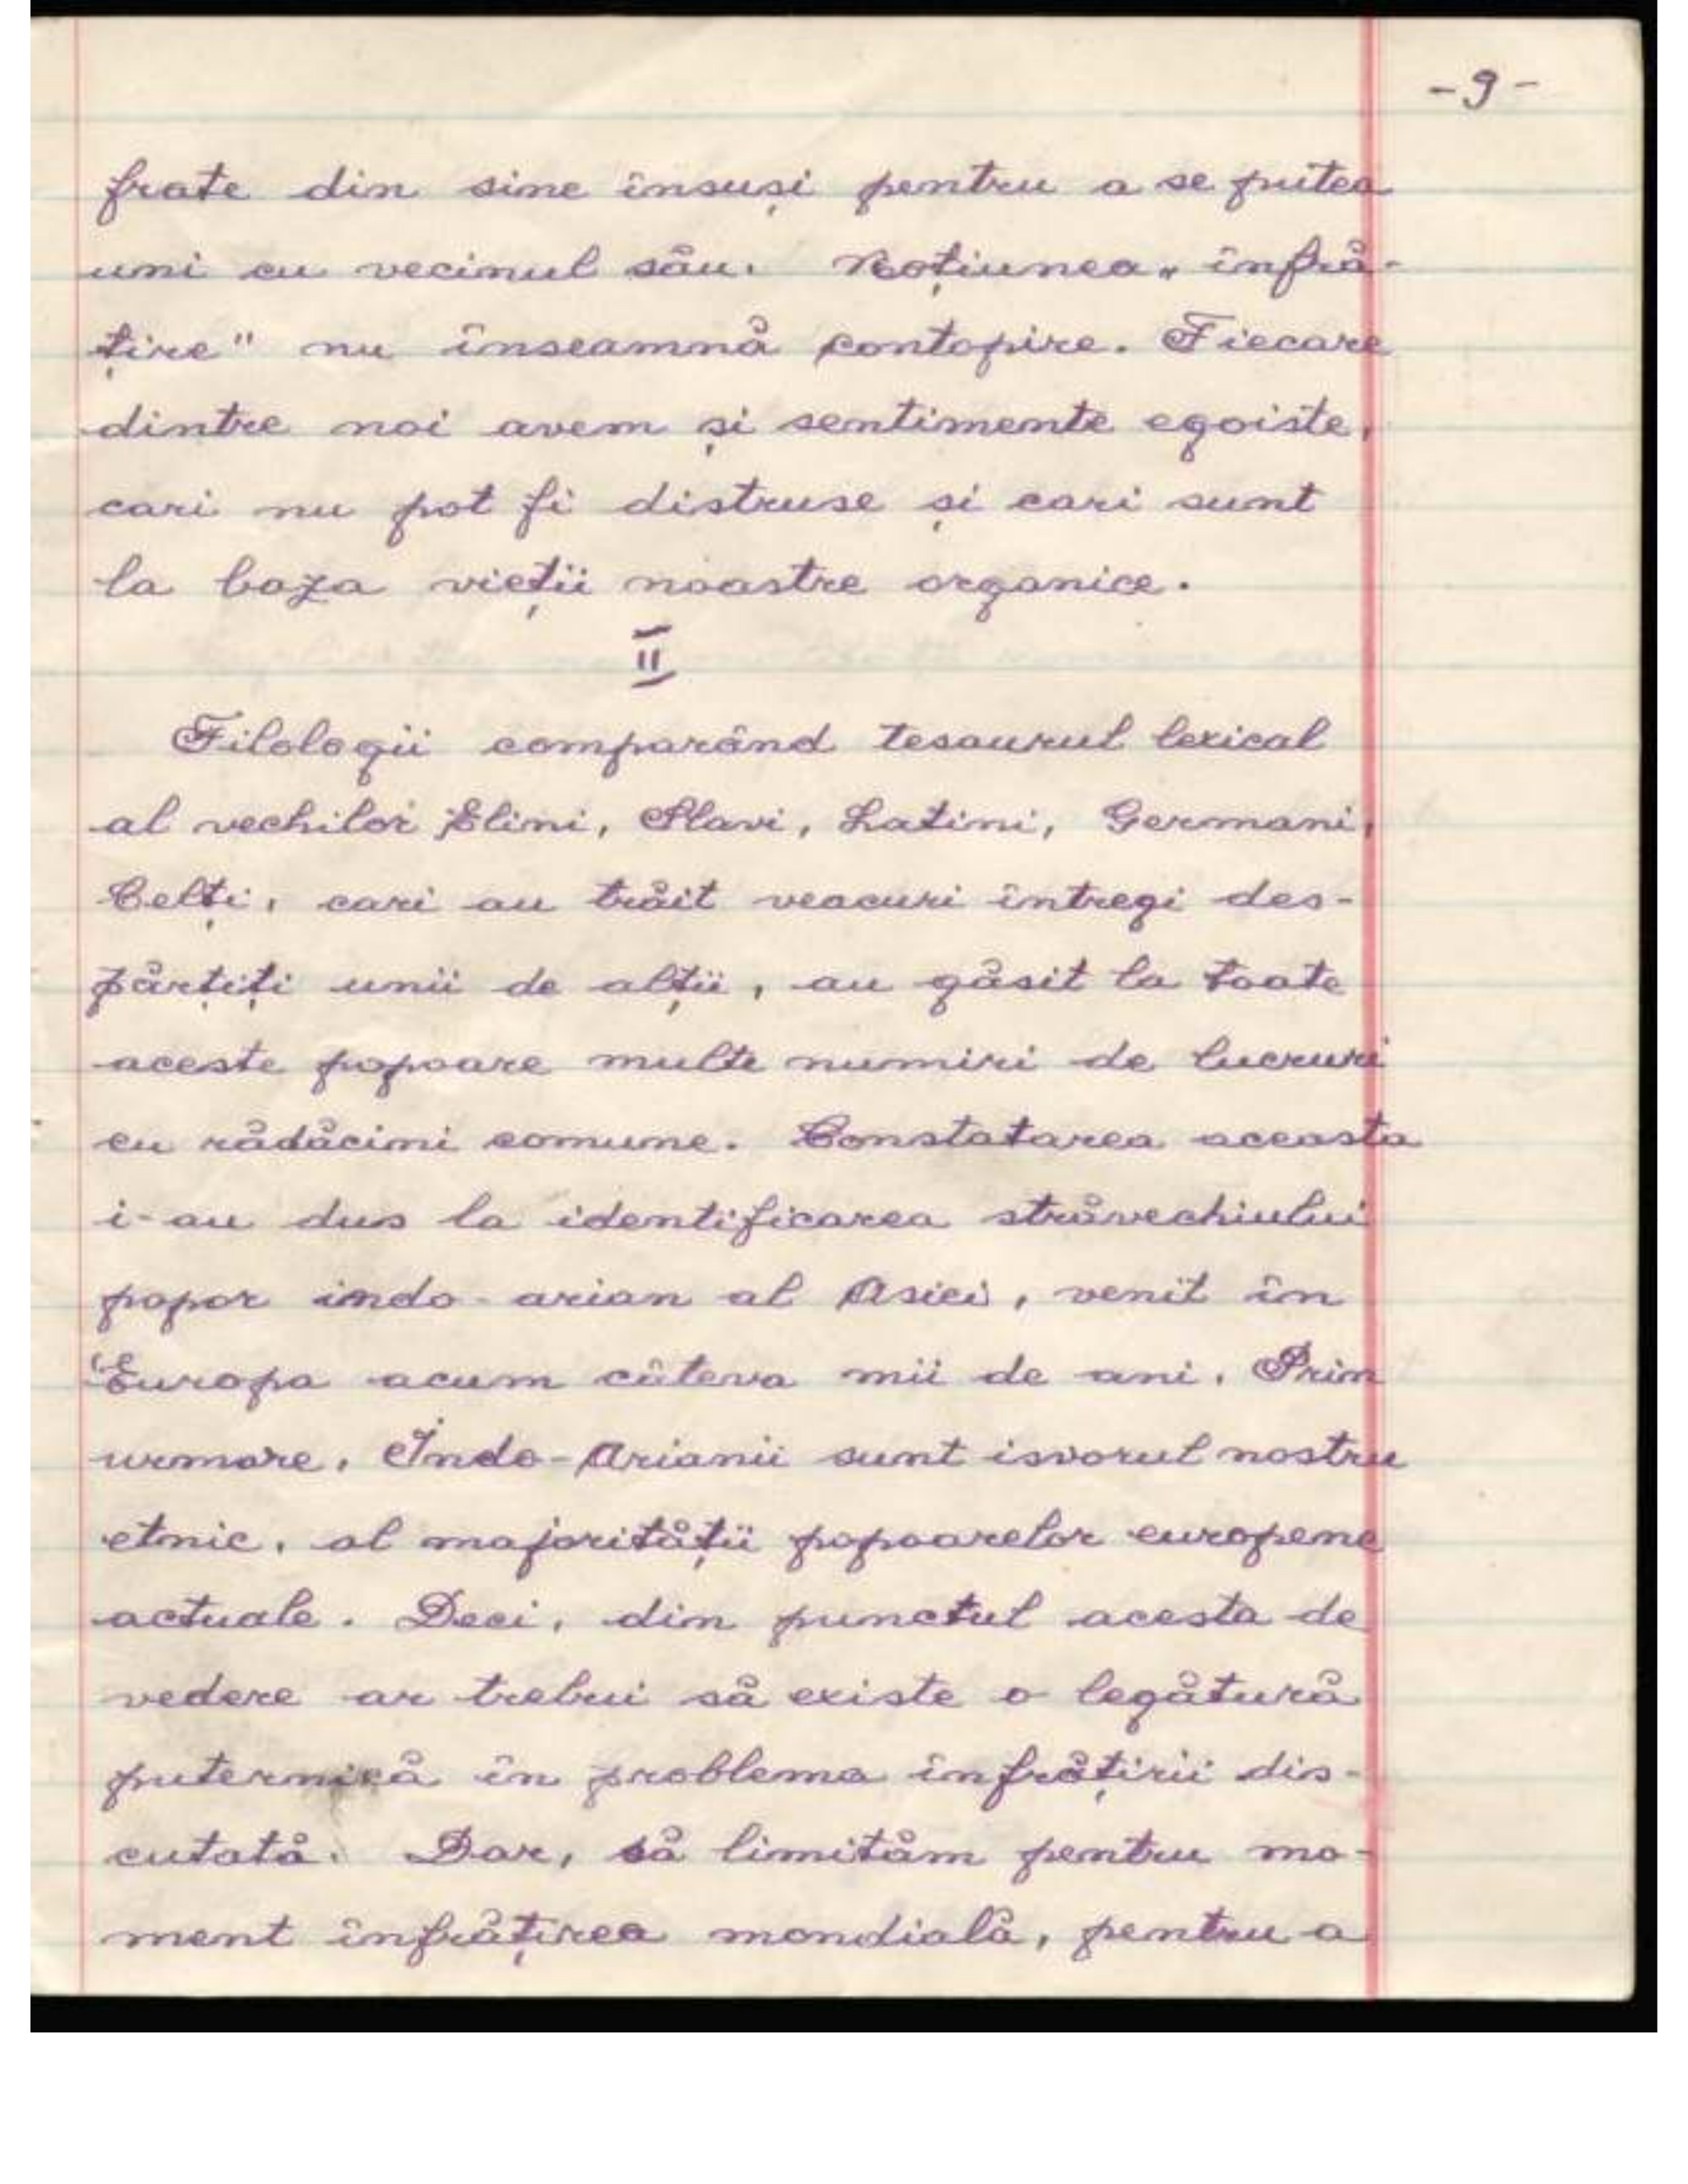 -9-
frate din sine însuși pentru a se putea
uni cu vecinul său. Noțiunea „înfră-
țire" nu înseamnă contopire. Fiecare
dintre noi avem și sentimente egoiste,
cari nu pot fi distruse și cari sunt
la baza vieții noastre organice.
II
Filologii comparând tesaurul lexical
al vechilor Elini, Slavi, Latini, Germani,
Celți, cari au trăit veacuri întregi des-
părțiți unii de alții, au găsit la toate
aceste popoare multe numiri de lucruri
cu rădăcini comune. Constatarea aceasta
i-au dus la identificarea străvechiului
popor indo-arian al Asiei, venit în
Europa acum câteva mii de ani. Prin
urmare, Indo-Arianii sunt isvorul nostru
etnic, al majorității popoarelor europene
actuale. Deci, din punctul acesta de
vedere ar trebui să existe o legătură
puternică în problema înfrățirii dis-
cutată. Dar, să limităm pentru mo-
ment înfrățirea mondială, pentru a